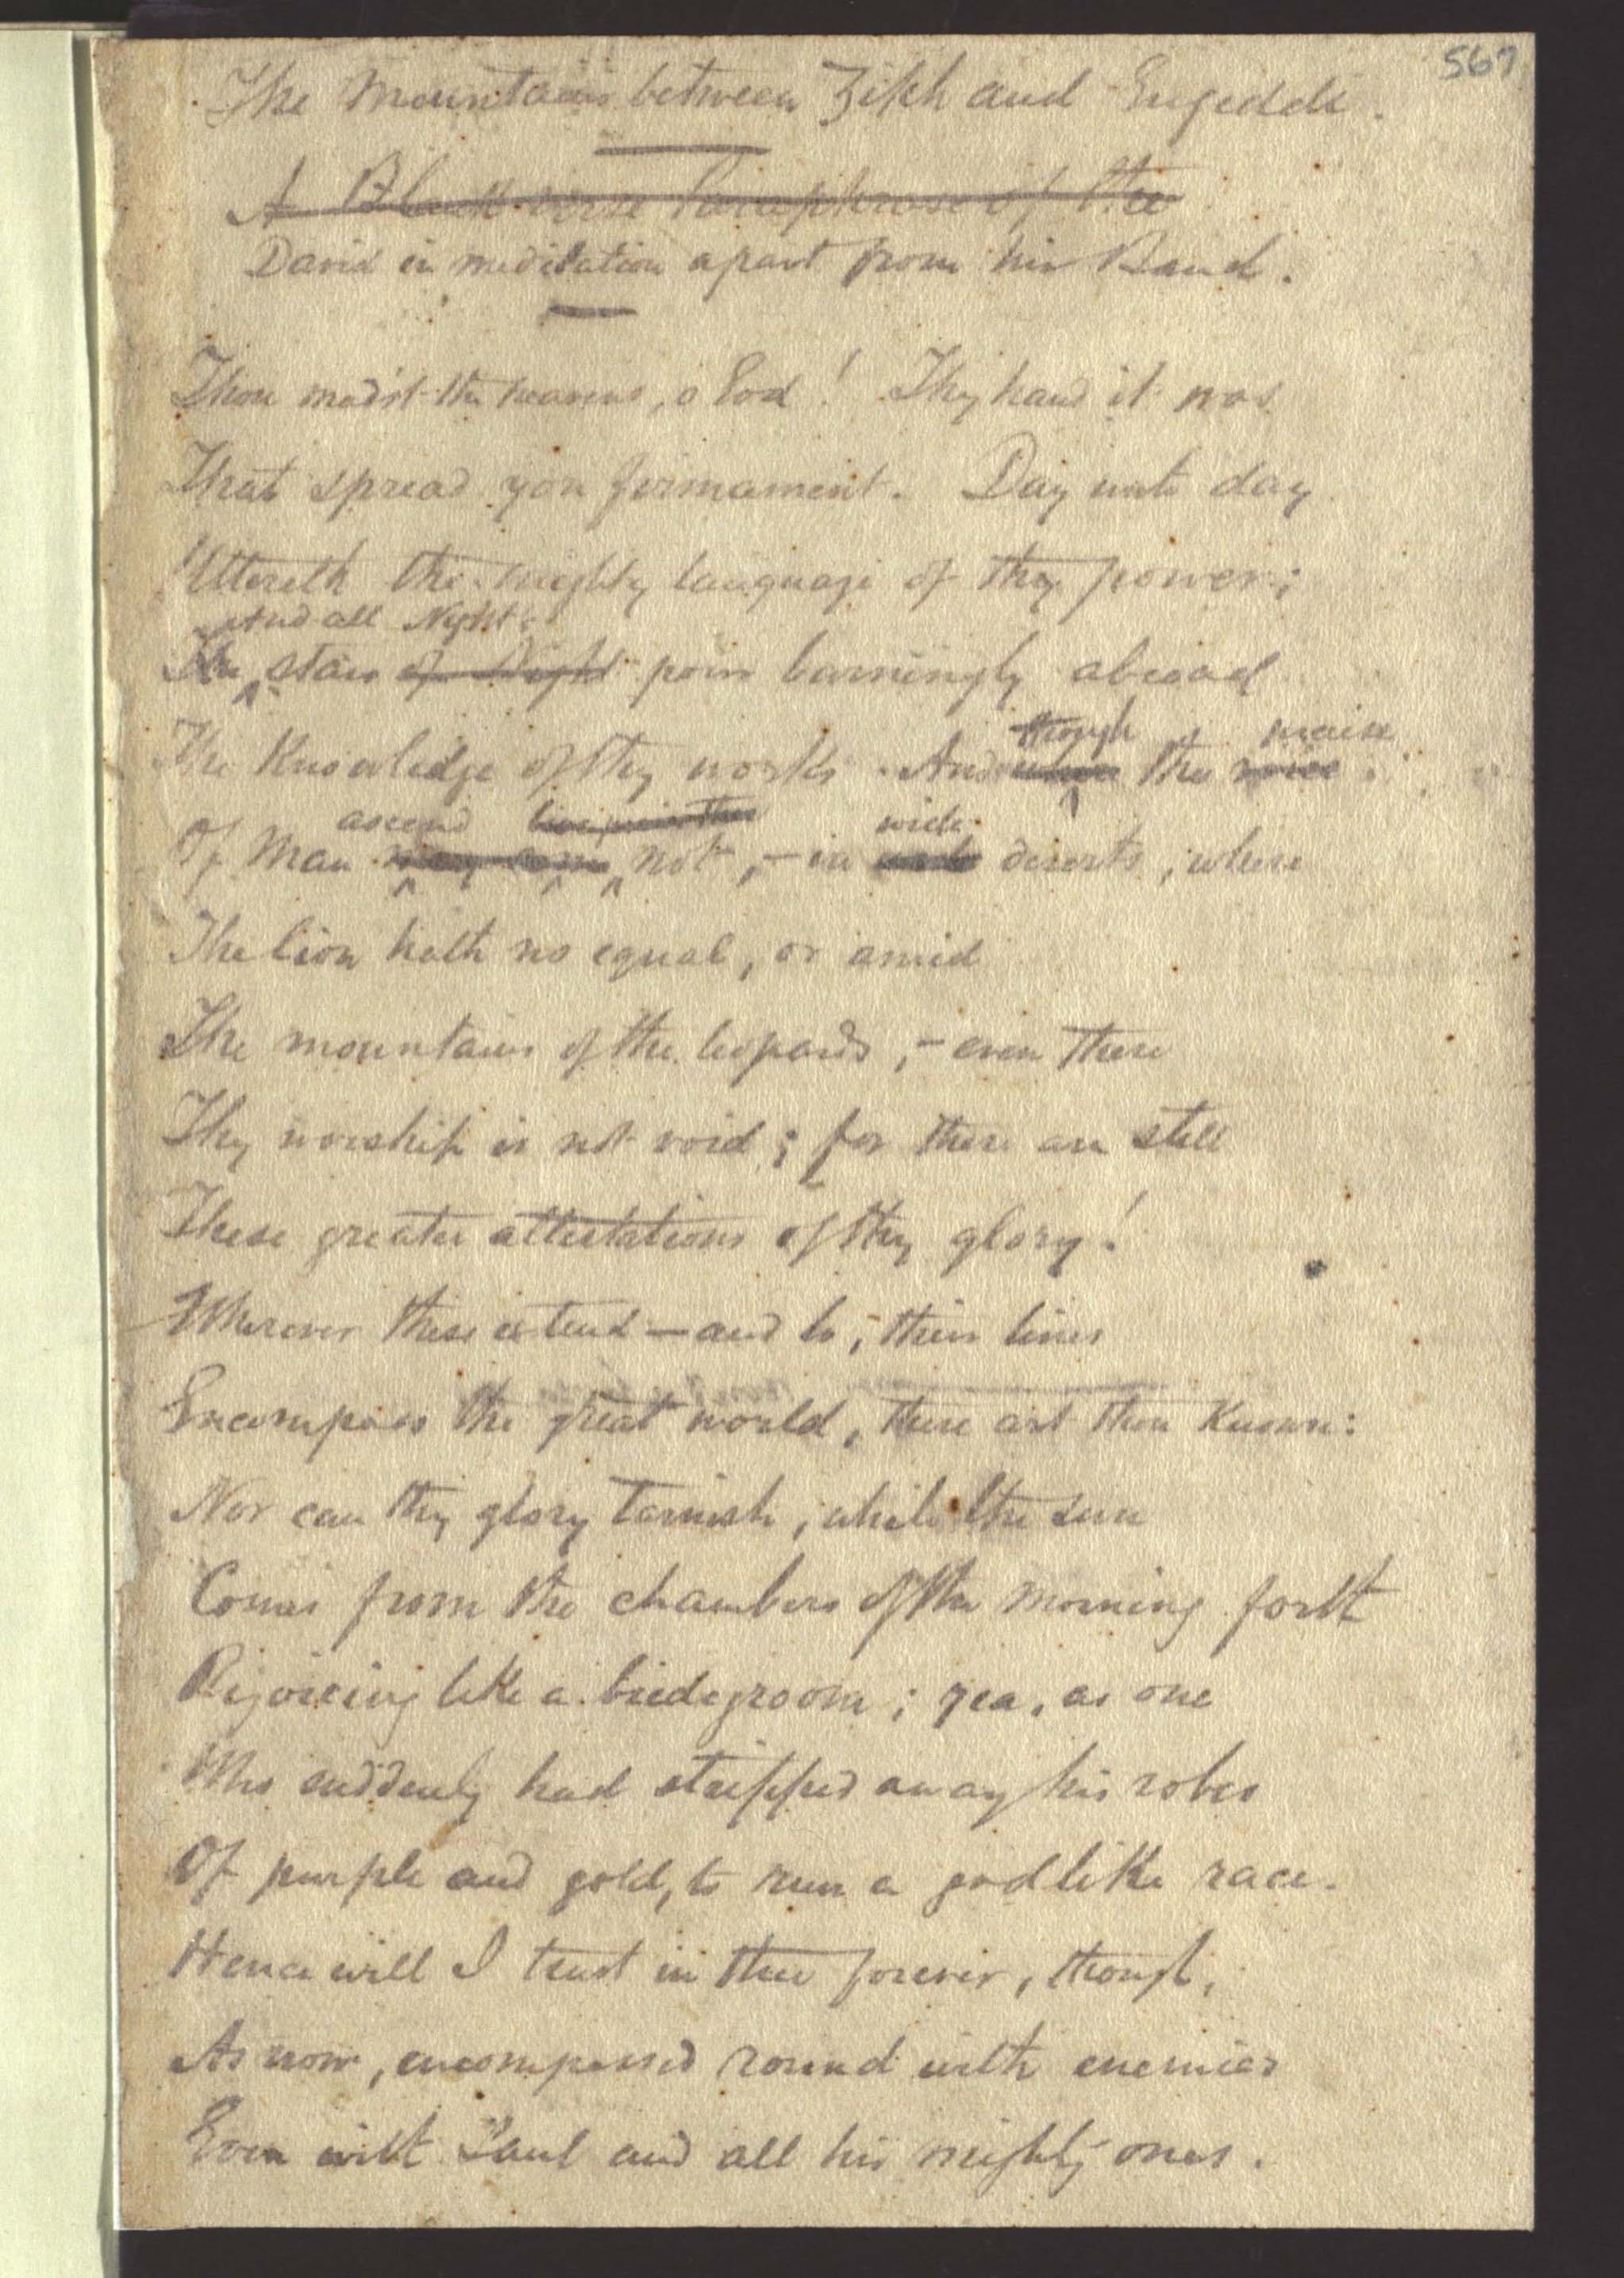 567
The Mountains between Ziph and Engeddi.
A Blank verse Paraphrase of the
David in meditation apart from his Band.
Thou mad'st the heavens, o God! Thy hand it was
That spread yon firmament. Day unto day
Uttereth the mighty language of thy power;
And all Night's
The stars of Night pour burningly abroad
though praise
The Knowledge of thy works. And when the voice
ascend wide
Of Man may come not, – in deserts, where
The lion hath no equal, or amid
The mountains of the leopards, – even there
Thy worship is not void; for there are still
These greater attestations of thy glory!
Wherever these extend — and lo, their lines
Encompass the great world, there art thou Known:
Nor can thy glory tarnish, while the sun
Comes from the chambers of the morning forth
Rejoicing like a bridegroom; yea, as one
Who suddenly had stripped away his robes
Of purple and gold, to run a godlike race.
Hence will I trust in thee forever, though,
As now, encompassed round with enemies
Even with Saul and all his mighty ones.